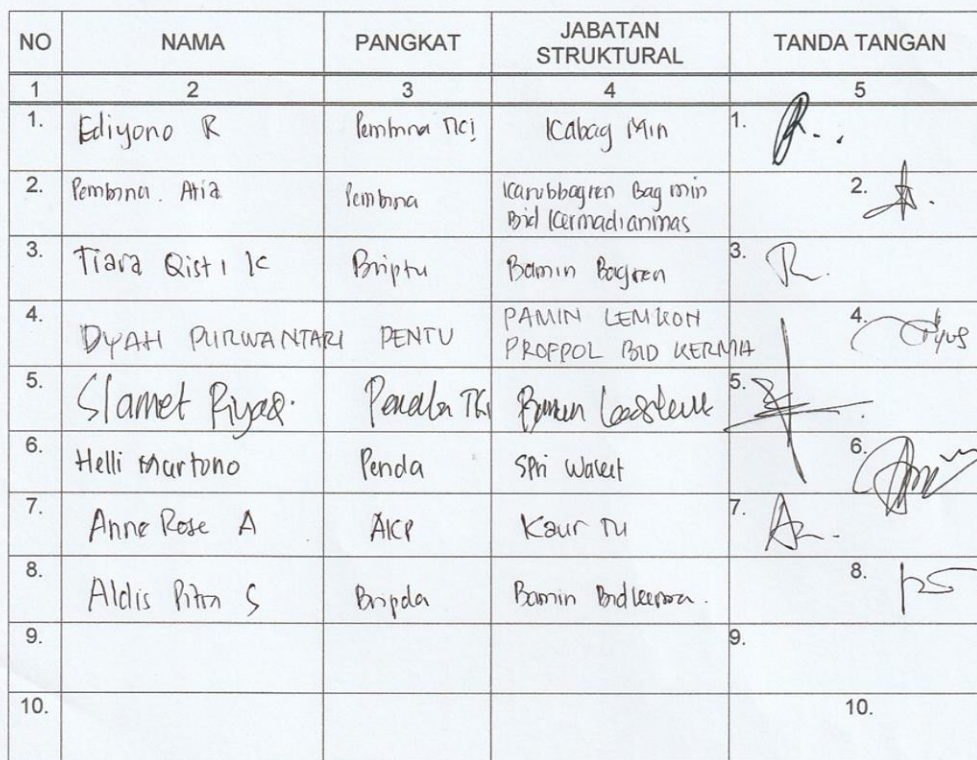 NO NAMA PANGKAT JABATAN STRUKTURAL TANDA TANGAN
1 2 3 4 5
1. Ediyono R Pembina TK I Kabag Min 1.
2. Pembina Atia Pembina Bag min 2.
Bid Kermadianmas
3. Tiara Qisti K Briptu Bamin Bagren 3.
4. DYAH PURWANTARI PENTU PAMIN LEMKON 4.
PROFPOL BID KERMA
5. Slamet Riyadi Penda TK I 5.
6. Helli Martono Penda Spri 6.
7. Anne Rose A AKP Kaur TU 7.
8. Aldis S Bripda Bamin 8.
9. 9.
10. 10.